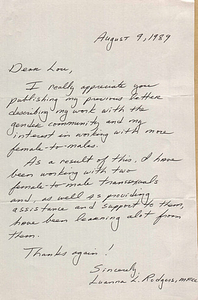 August 9, 1989
Dear Lou,
I really appreciate you
publishing my previous letter
describing my work with the
gender community and my
interest in working with more
female-to-males.
As a result of this, I have
been working with two
female-to-male transexuals
and, as well as providing
assistance and support to them,
have been learning alot from
them.
Thanks again!
Sincerely,
Luanna L. Rodgers,